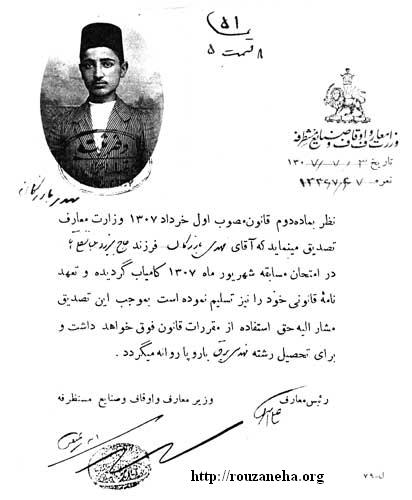 ۵۱
۸ قسمت ۵
وزارت معارف و اوقاف و صنایع مستظرفه
تاریخ ۱۳۰۷/۷/۳
نمره
مهدی بازرگان
نظر بماده دوم قانون مصوب اول خرداد ۱۳۰۷ وزارت معارف
تصدیق مینماید که آقای مهدی بازرگان فرزند حاج
در امتحان مسابقه شهریور ماه ۱۳۰۷ کامیاب گردیده و تعهد
نامهٔ قانونی خود را نیز تسلیم نموده است بموجب این تصدیق
مشار الیه حق استفاده از مقررات قانون فوق خواهد داشت و
برای تحصیل رشته مهندسی برق باروپا روانه میگردد .
رئیس معارف وزیر معارف واوقاف وصنایع مستظرفه
ل-۷۹۰
http://rouzaneha.org